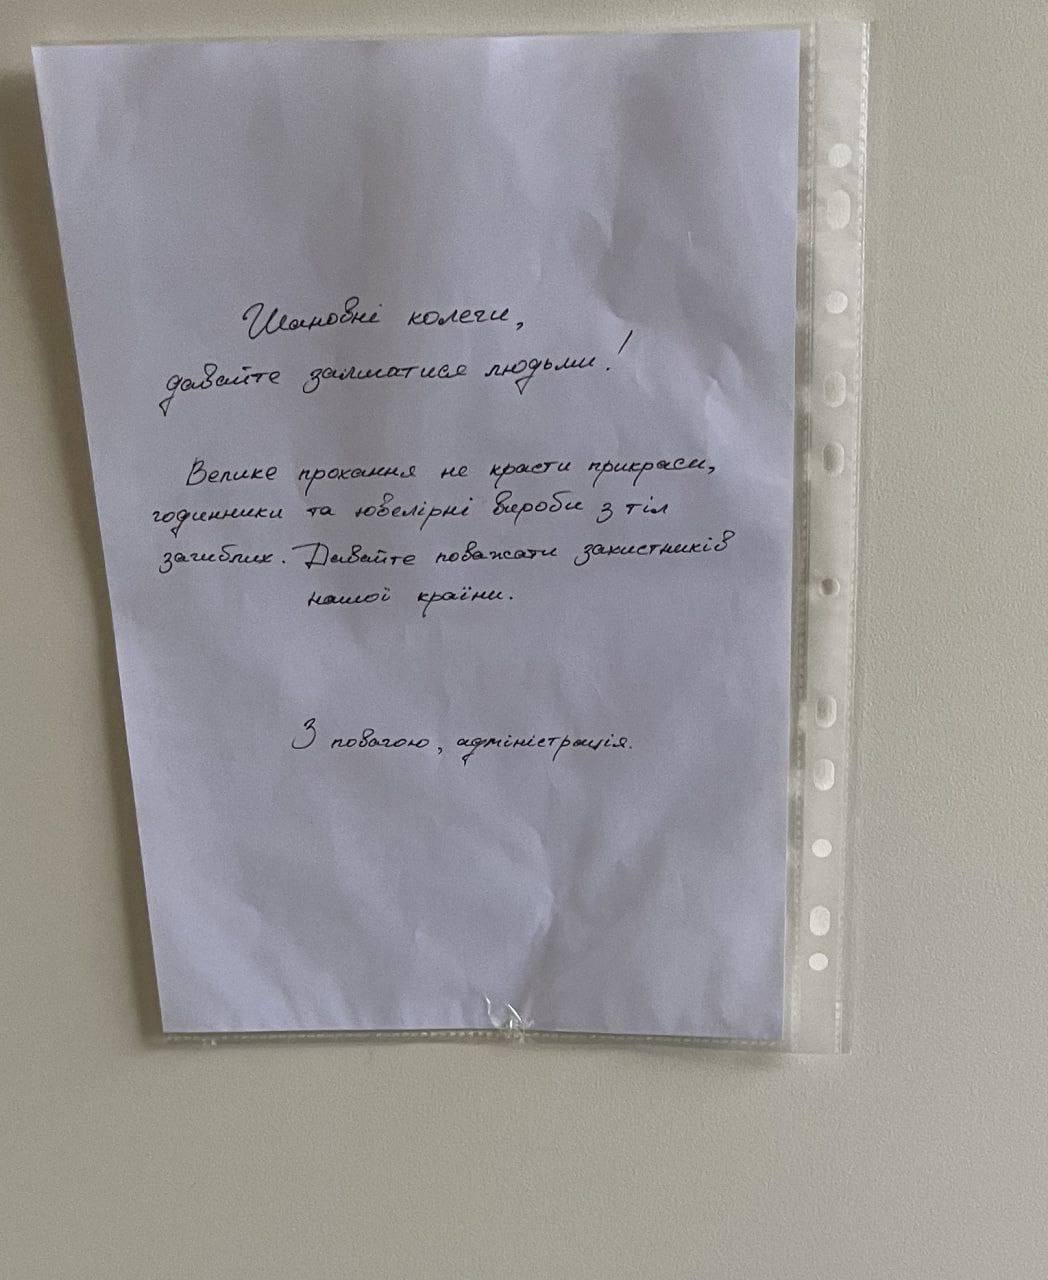 Шановні колеги,
давайте залишатися людьми!
Велике прохання не красти прикраси,
годинники та ювелірні вироби з тіл
загиблих. Давайте поважати захистників
нашої країни.
З повагою, адміністрація.